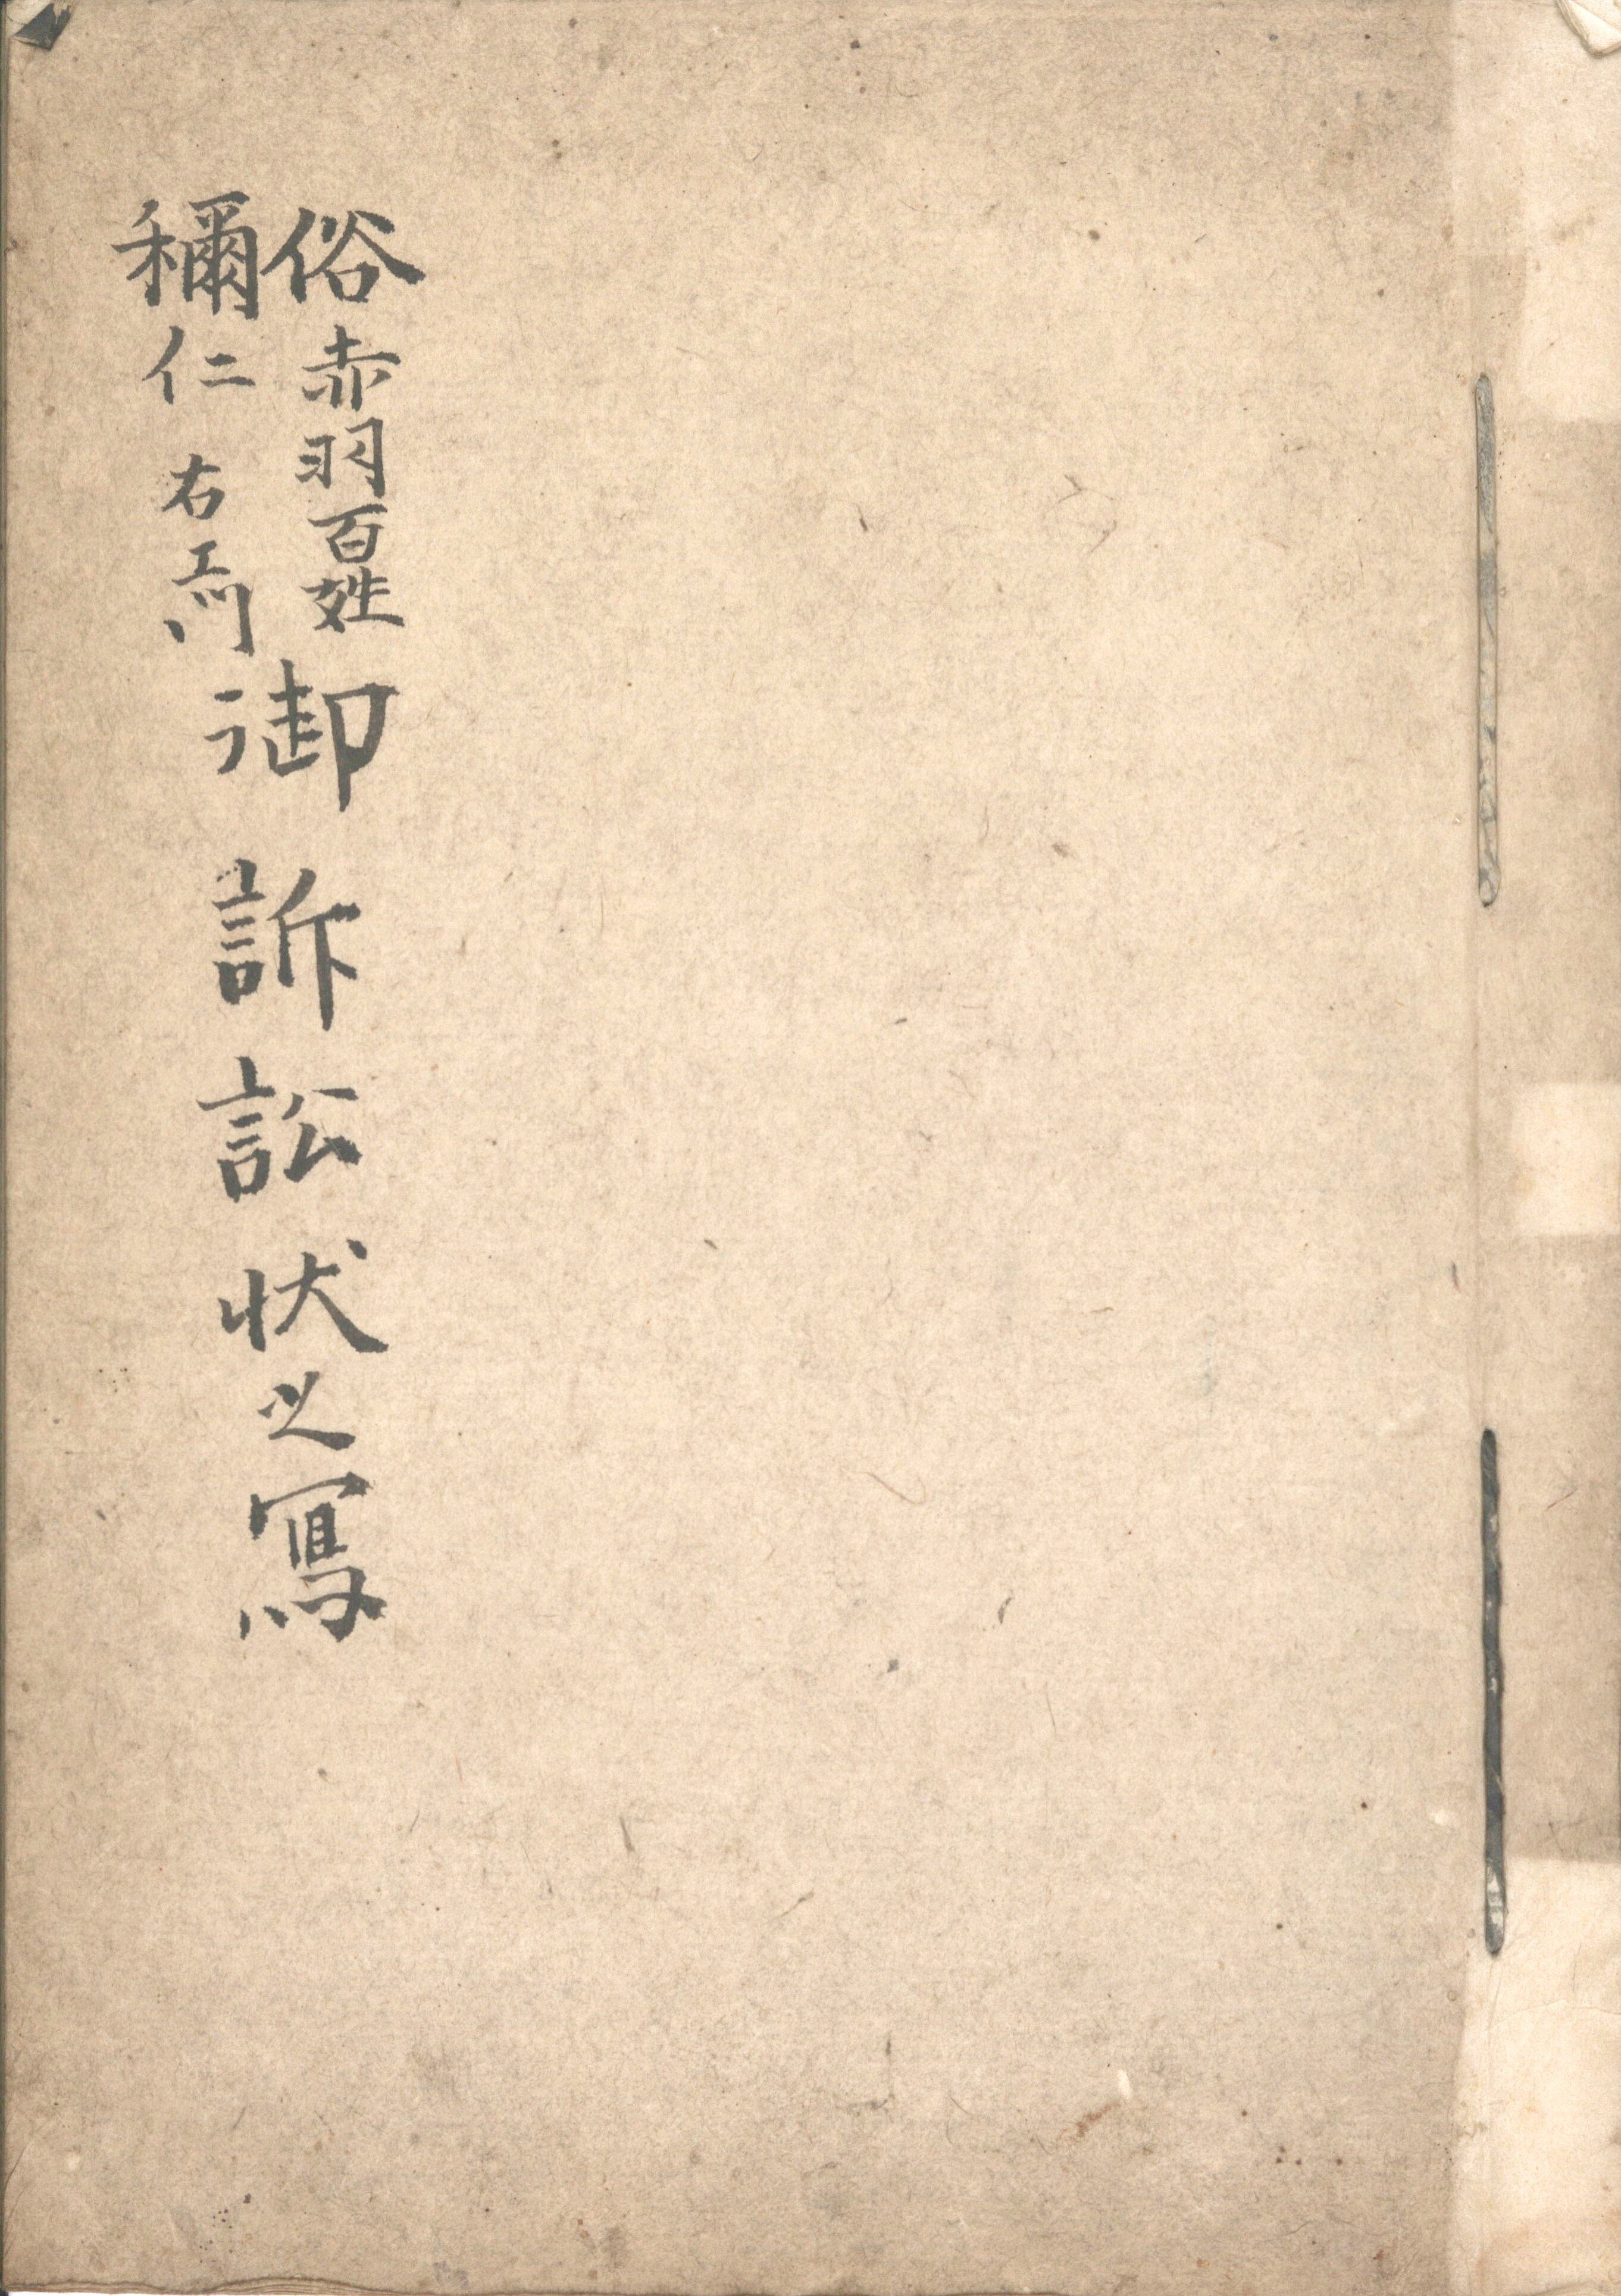 俗赤羽百姓
稱仁右衛門
御訴訟状之寫